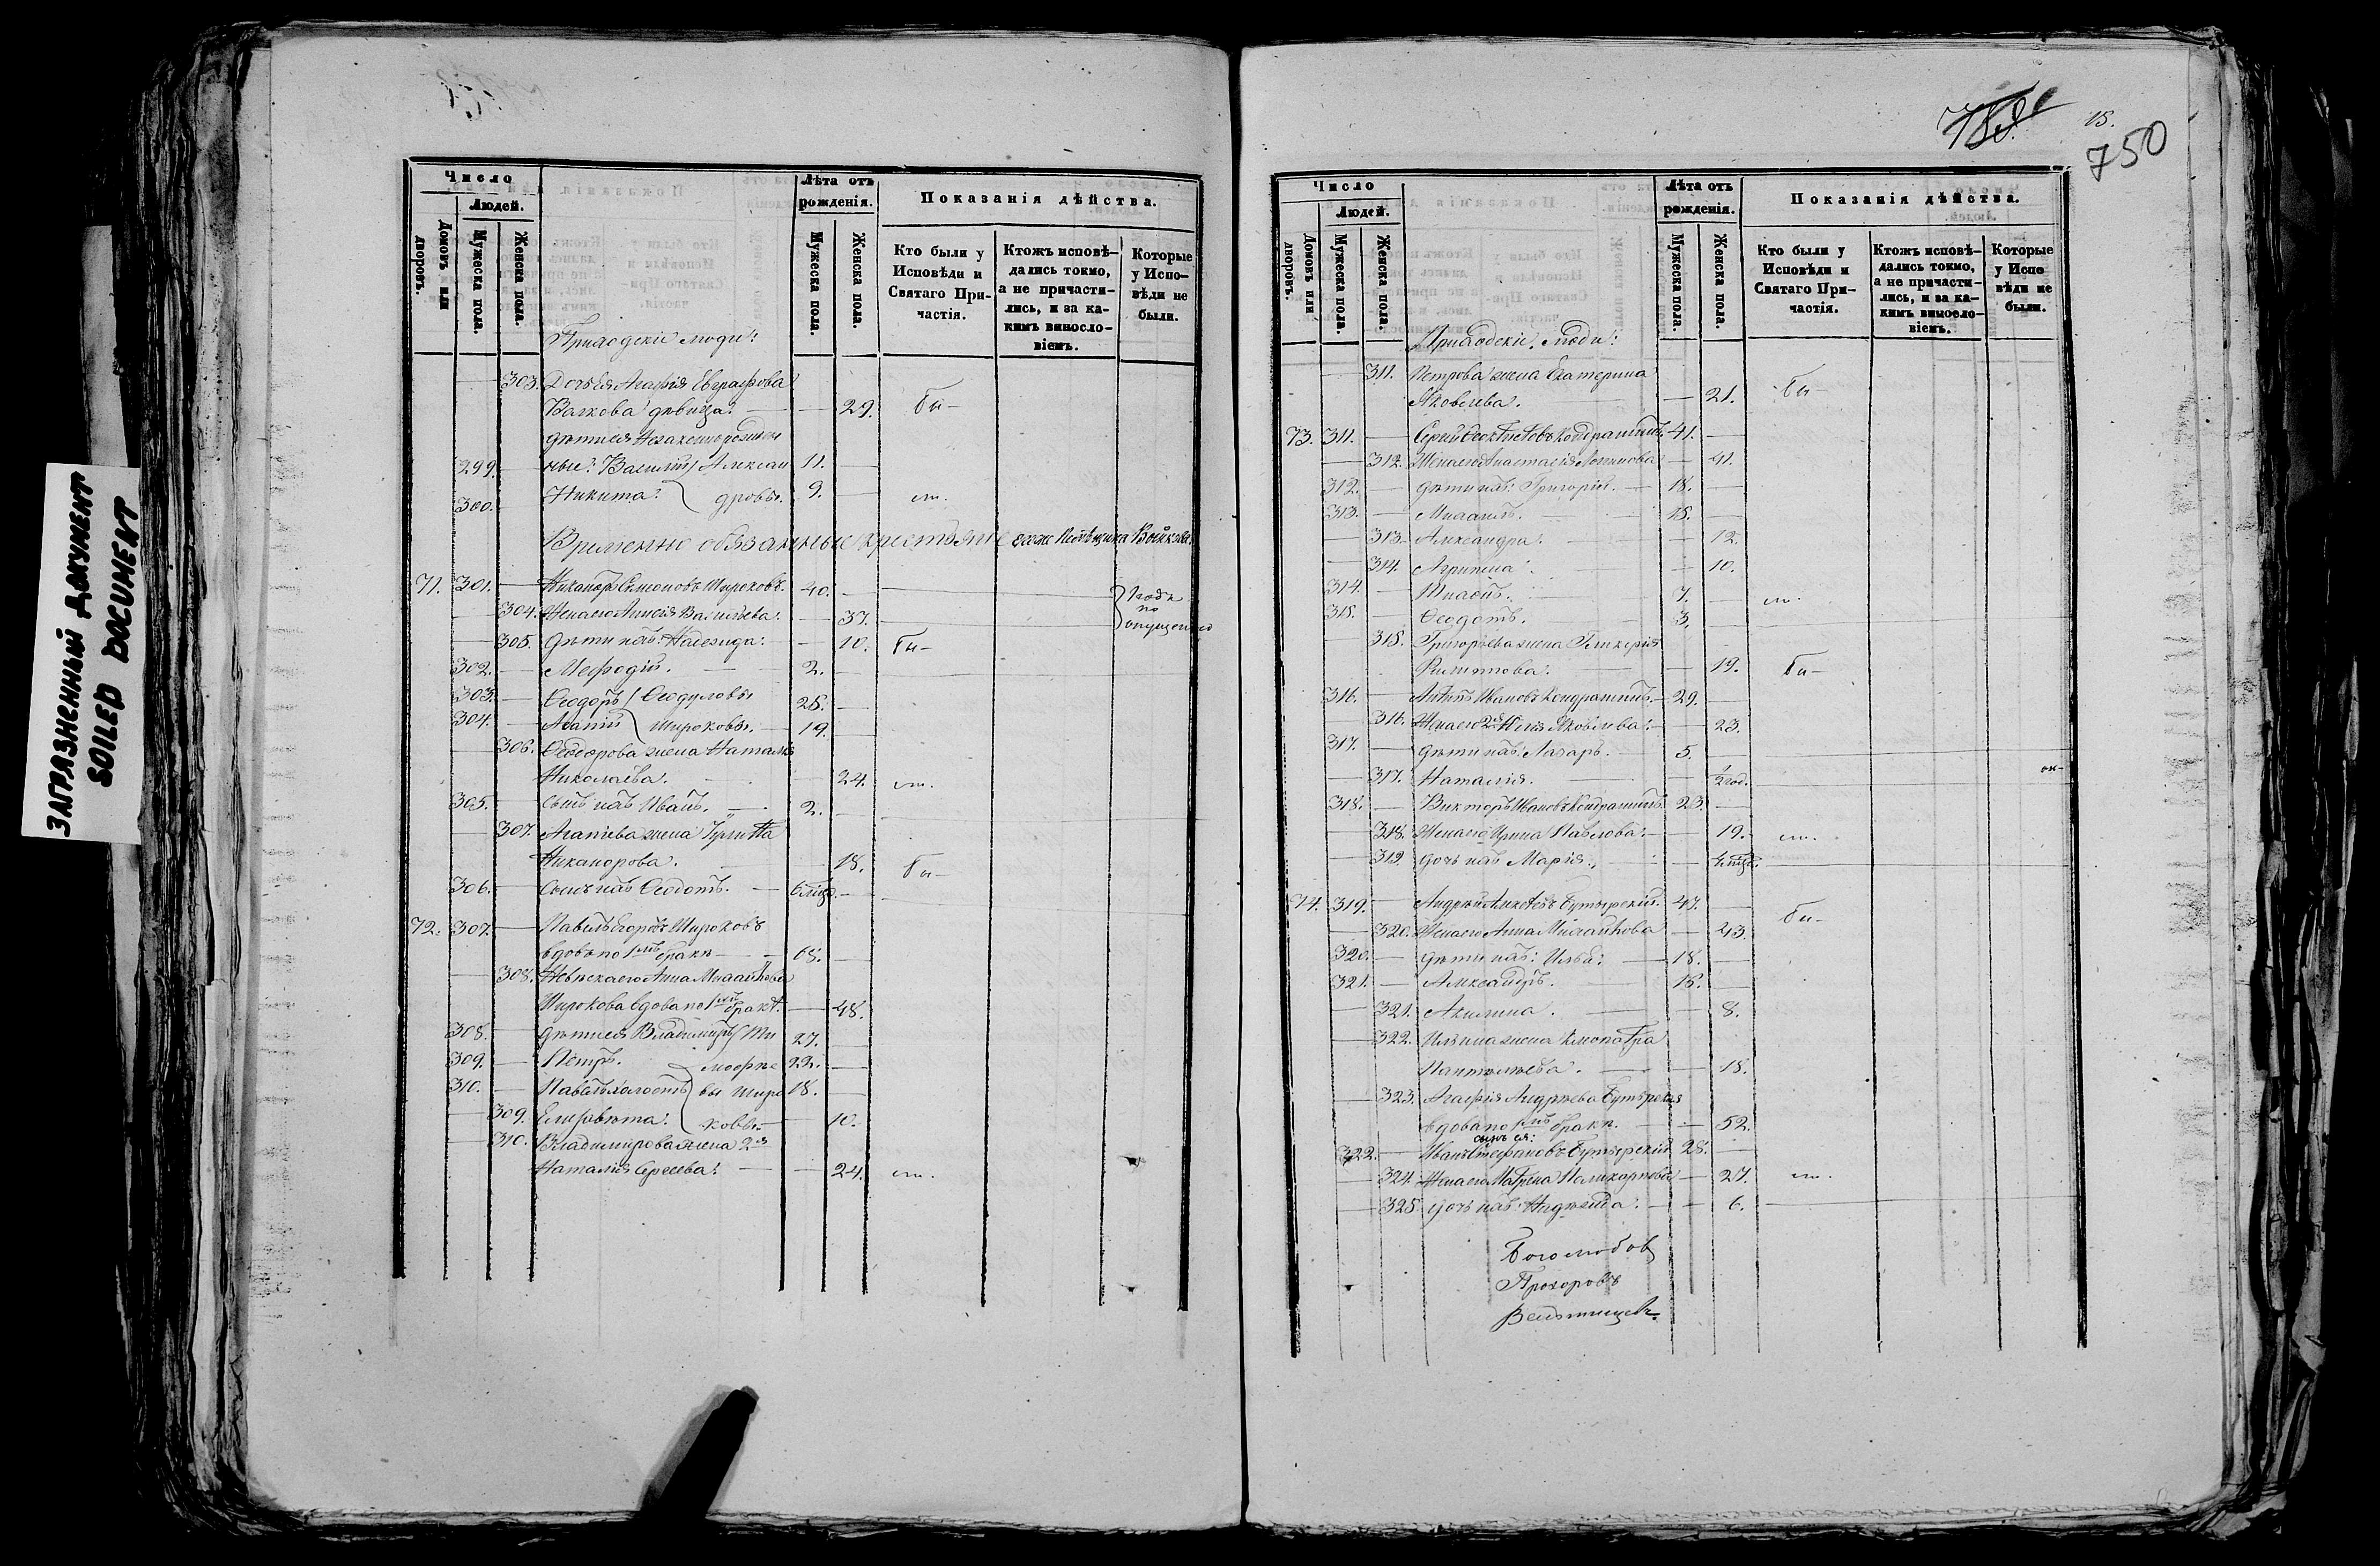 ЗАГРАЗНЕННЫЙ ДОКУМЕНТ
SOILED DOCUMENT
Число
Людей.
Домовъ или дворовъ.
Мужеска пола.
Женска пола.
Лѣта отъ рожденія.
Мужеска пола.
Женска пола.
Показанія дѣйства.
Кто были у Исповѣди и Святаго Причастія.
Ктожъ исповѣдались токмо, а не причастились, и за какимъ винословіемъ.
Которые у Исповѣди не были.
Приходскіе люди:
303. Дочь ея Агафія Евграфова
Валкова дѣвица. 29. бы-
дѣти ея незаконнорожден
299. ные: Василій Алексан 11.
300. Никита: дровы. 9. ли.
Временно обязанные крестьяне
71. 301. Никаноръ Симеоновъ Широковъ. 40.
304. Жена его Васильева. 37. по опущенію
305. Дѣти ихъ: Надежда. 10. бы-
302. Мефодій. 2.
303. Ѳеодоръ Ѳеодуловы 25.
304. Агапій Широковы. 19.
306. Ѳеодорова жена Наталія
Николаева. 24. ли.
305. Сынъ ихъ Иванъ. 2.
307. Агапіева жена
Никанорова. 18. бы-
306. Сынъ ихъ Ѳеодотъ. 6 мцъ.
72. 307. Павелъ Егоровъ Широковъ
вдовъ по 1мъ бракѣ 65.
308. Невѣстка его Анна Михайлова
Широкова вдова по 1мъ бракѣ. 48.
308. Дѣти ея Владимиръ Ти 27.
309. Петръ. моѳѣе 22.
310. Павелъ холостъ вы Широ 18.
309. Елисавета. ковы. 10.
310. Владимирова жена 2я
Наталія Сергеева. 24. ли.
15.
750
Число
Людей.
Домовъ или дворовъ.
Мужеска пола.
Женска пола.
Лѣта отъ рожденія.
Мужеска пола.
Женска пола.
Показанія дѣйства.
Кто были у Исповѣди и Святаго Причастія.
Ктожъ исповѣдались токмо, а не причастились, и за какимъ винословіемъ.
Которые у Исповѣди не были.
Приходскіе люди:
311. Петрова жена Екатерина
Яковлева. 21. бы-
73. 311. Сергій Ѳеоктистовъ Кондрашинъ. 41.
312. Жена его Анастасія Логинова 41.
312. Дѣти ихъ: Григорій. 18.
313. Михаилъ. 15.
313. Александра. 12.
314. Агрипина. 10.
314. 7. ли.
315. Ѳеодотъ. 3.
315. Григорьева жена Гликерія
Филиппова. 19. бы-
316. Антипъ Ивановъ Кондрашинъ. 29.
316. Жена его 2я Яковлева. 23.
317. Дѣти ихъ: Лазарь. 5.
317. Наталія. ½ год.
318. Викторъ Ивановъ Кондрашинъ 23.
318. Жена его Ирина Павлова. 19. ли.
319. Дочь ихъ Марія.
74. 319. Андрей Алексѣевъ Бутырскій. 47. бы-
320. Жена его Анна Михайлова 43.
320. Дѣти ихъ: Илья: 18.
321. Александръ. 15.
321. Акилина. 8.
322. Ильина жена Клеопатра
Пантелѣева. 18.
323. Агафія Андреева Бутырская
вдова по 1мъ бракѣ. 52.
сынъ ея:
322. Иванъ Стефановъ Бутырскій 28.
324. Жена его Матрена Поликарпова 27. ли.
325. Дочь ихъ: Надежда. 6.
Боголюбовъ
Прохоровъ